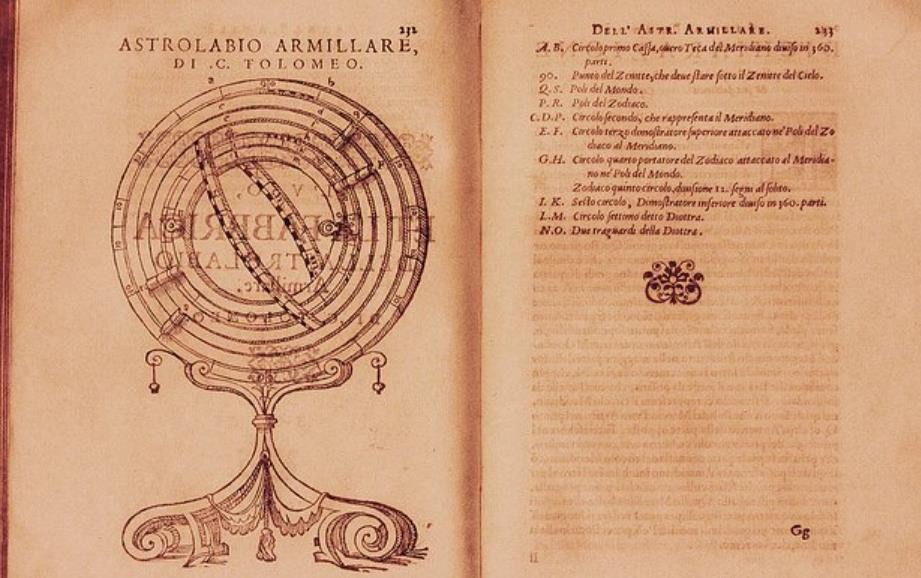 232
ASTROLABIO ARMILLARE,
DI .C. TOLOMEO.
a b
DELL' ASTR. ARMILLARE. 233
A. B. Circolo primo Cassa, overo Teca del Meridiano diviso in 360.
parti.
90. Punto del Zenitte, che deve stare sotto il Zenitte del Cielo.
Q. S. Poli del Mondo.
P. R. Poli del Zodiaco.
C. D. P. Circolo secondo, che rappresenta il Meridiano.
E. F. Circolo terzo dimostratore superiore attaccato ne' Poli del Zo
diaco al Meridiano.
G. H. Circolo quarto portatore del Zodiaco attaccato al Meridia-
no ne' Poli del Mondo.
Zodiaco quinto circolo, divisione 12. segni al solito.
I. K. Sesto circolo, Dimostratore inferiore diviso in 360. parti.
L. M. Circolo settimo detto Diottra.
N. O. Due traguardi della Diottra.
Gg